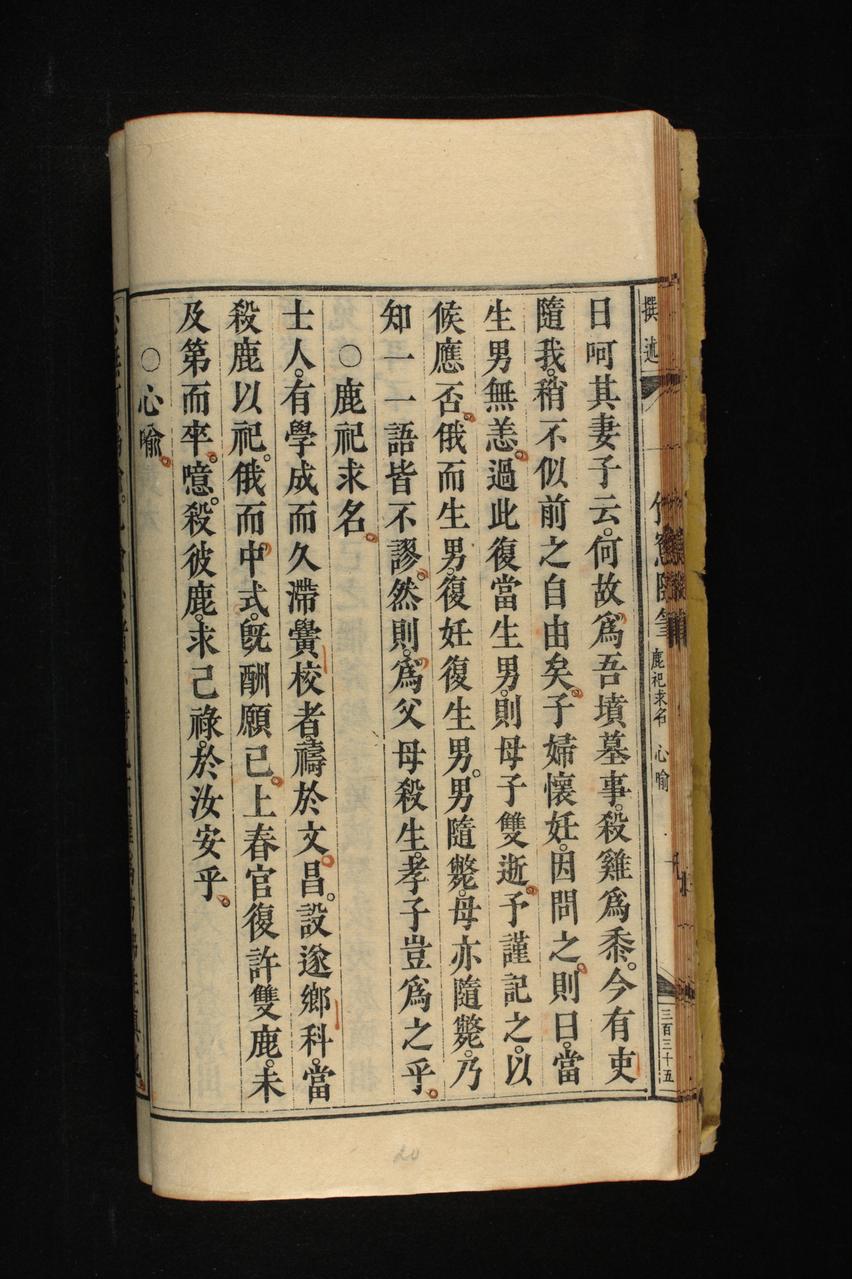 撰述
竹窻隨筆
鹿祀求名 心喻
三百三十五
日呵其妻子云。何故爲吾墳墓事。殺雞爲黍。今有吏
隨我。稍不似前之自由矣。子婦懷妊。因問之。則曰。當
生男無恙。過此復當生男。則母子雙逝。予謹記之。以
候應否。俄而生男。復妊復生男。男隨斃。母亦隨斃。乃
知一一語皆不謬。然則。爲父母殺生。孝子豈爲之乎。
○鹿祀求名
士人。有學成而久滯黌校者。禱於文昌。設遂鄉科。當
殺鹿以祀。俄而中式。旣酬願已。上春官復許雙鹿。未
及第而卒。噫。殺彼鹿。求己祿。於汝安乎。
○心喻